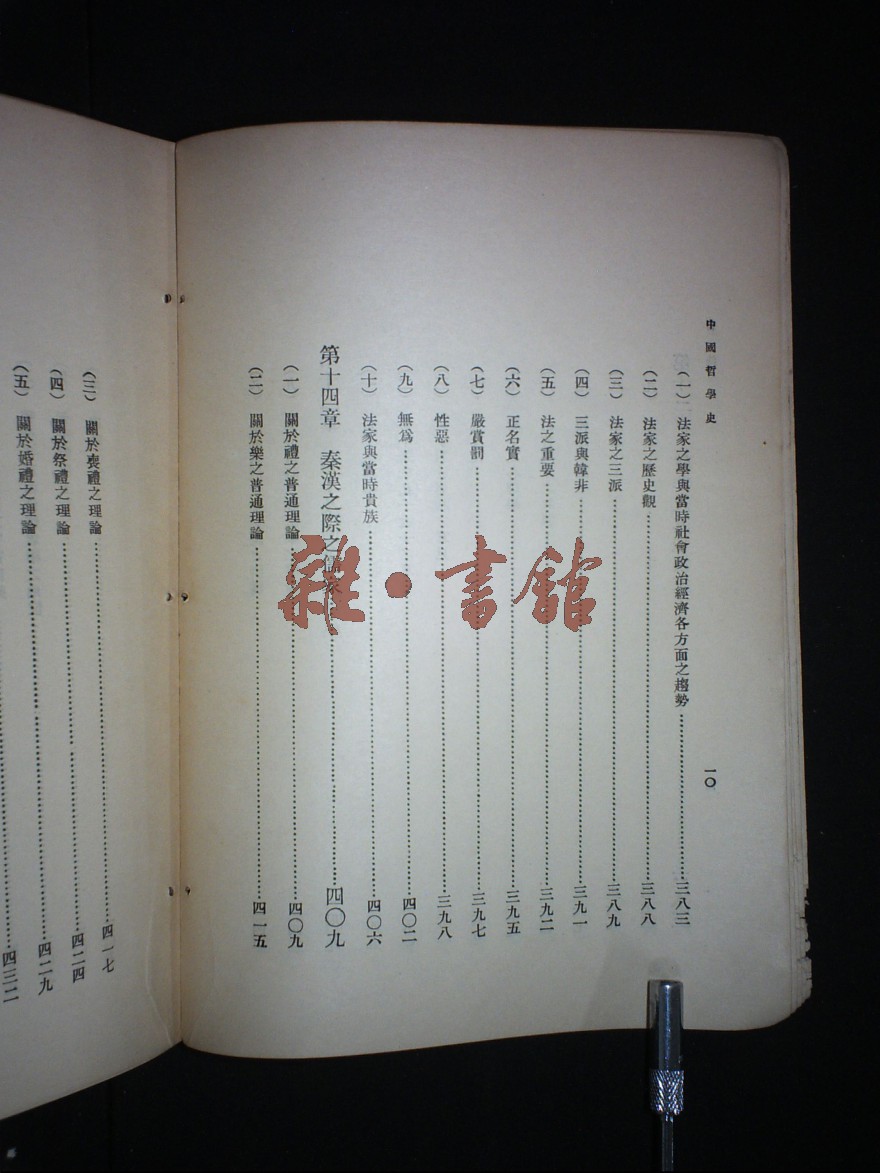 中國哲學史
一〇
(一) 法家之學與當時社會政治經濟各方面之趨勢……三八三
(二) 法家之歷史觀……三八八
(三) 法家之三派……三八九
(四) 三派與韓非……三九一
(五) 法之重要……三九二
(六) 正名實……三九五
(七) 嚴賞罰……三九七
(八) 性惡……三九八
(九) 無爲……四〇二
(十) 法家與當時貴族……四〇六
第十四章 秦漢之際之儒家……四〇九
(一) 關於禮之普通理論……四〇九
(二) 關於樂之普通理論……四一五
(三) 關於喪禮之理論……四一七
(四) 關於祭禮之理論……四二四
(五) 關於婚禮之理論……四二九
四三二
雜·書館